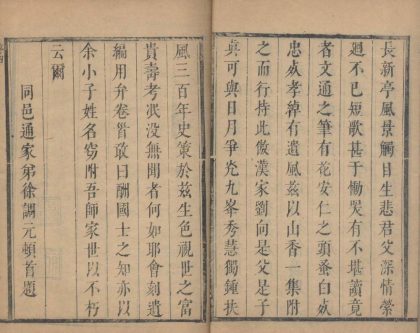 長新亭風景觸目生悲君父深情縈
廻不已短歌甚于慟哭有不堪讀竟
者文通之筆有花安仁之頭蚤白焱
忠孝綽有遺風茲以山香一集附
之而行持此倣漢家劉向是父是子
真可與日月爭光九峯秀慧獨鍾扶
風三百年史策於茲生色視世之富
貴壽考泯沒無聞者何如耶會刻遺
編用弁卷首敢曰酬國士之知亦以
余小子姓名竊附吾師家世以不朽
云爾
同邑通家弟徐調元頓首題